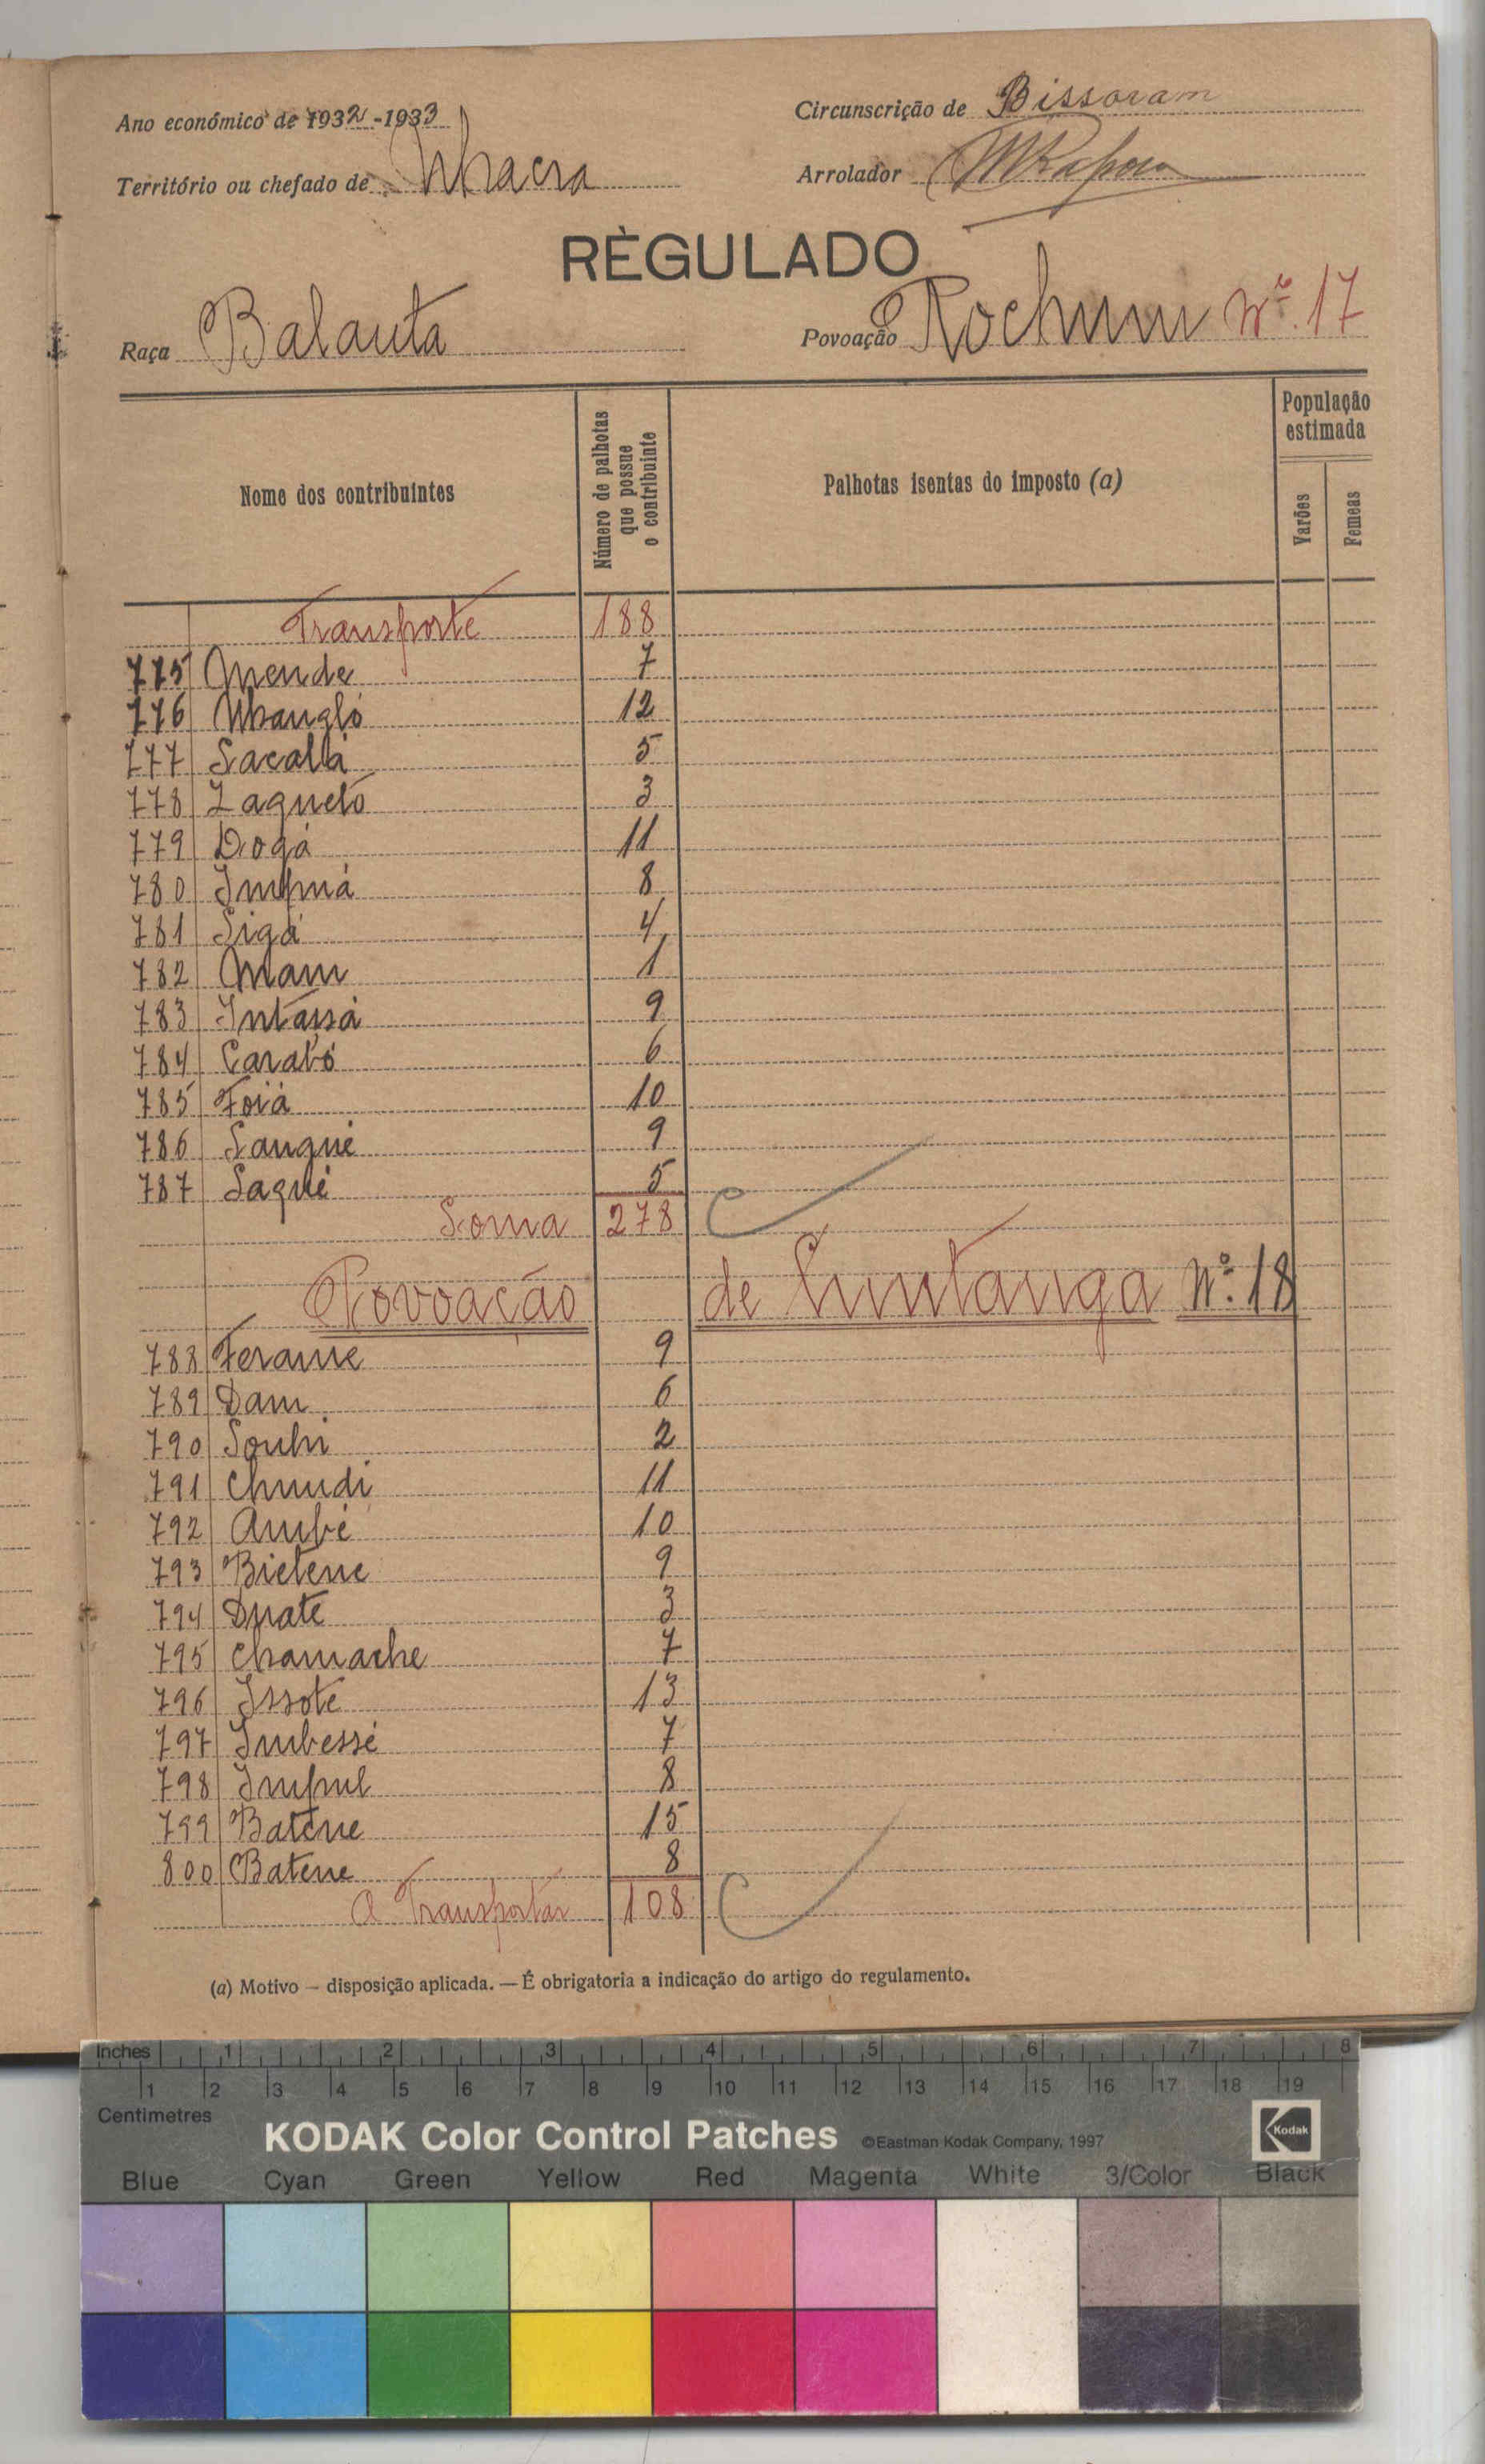 Ano económico de 1932-1933
Circunscrição de Bissoram
Território ou chefado de Nhacra
Arrolador
RÈGULADO
Raça Balanta
Povoação Rochum Nº. 17
Nome dos contribuintes
Número de palhotas que possue o contribuinte
Palhotas isentas do imposto (a)
População estimada
Varões
Femeas
Transporte 188
775 Mende 7
776 Nhangló 12
777 Sacallá 5
778 Zaquetó 3
779 Dogá 11
780 Impuá 8
781 Sigá 4
782 Mam 1
783 Intássá 9
784 Carabó 6
785 Foiá 10
786 Sangué 9
787 Sagué 5
Soma 278
Povoação de Cuntanga Nº. 18
788 Ferame 9
789 Dam 6
790 Souhi 2
791 Chundi 11
792 Ambé 10
793 Bietene 9
794 Duate 3
795 Chamache 7
796 Issote 13
797 Imbessé 7
798 Impul 8
799 Batene 15
800 Batene 8
A Transportar 108
(a) Motivo — disposição aplicada. — É obrigatoria a indicação do artigo do regulamento.
Inches 1 2 3 4 5 6 7 8
1 2 3 4 5 6 7 8 9 10 11 12 13 14 15 16 17 18 19
Centimetres
KODAK Color Control Patches ©Eastman Kodak Company, 1997 Kodak
Blue Cyan Green Yellow Red Magenta White 3/Color Black